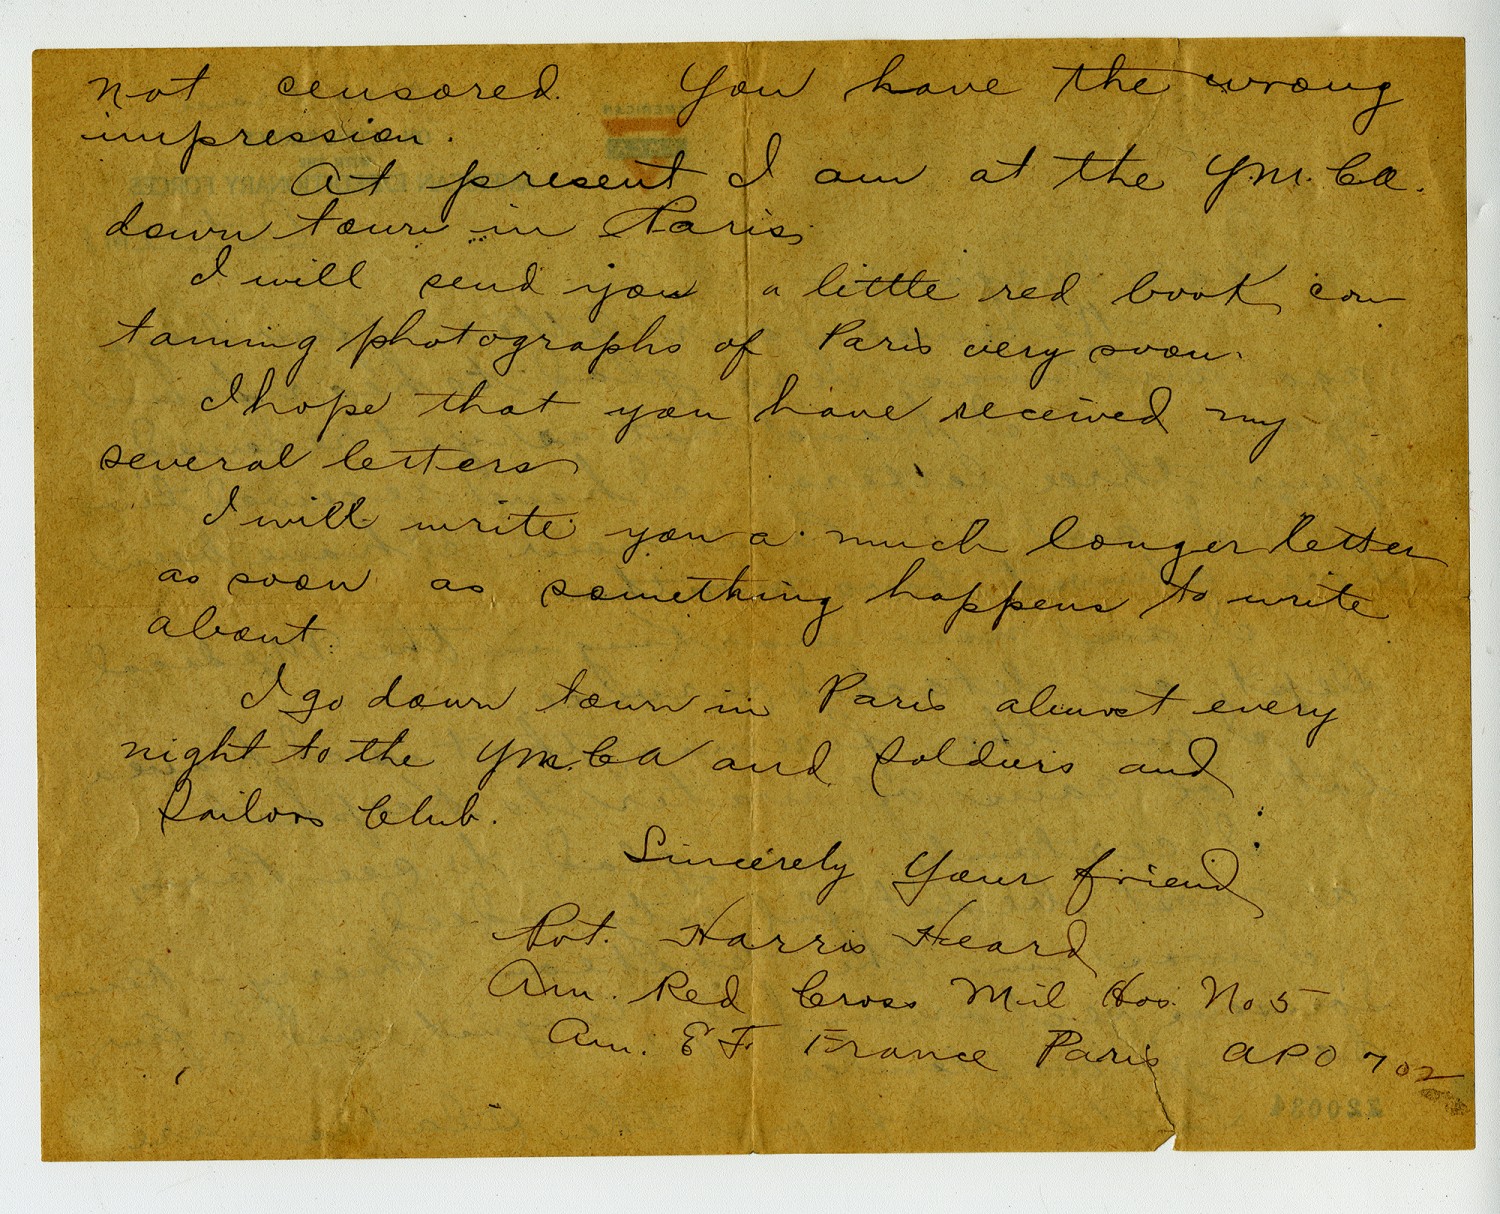 not censored. You have the wrong
impression.
At present I am at the Y.M.C.A.
down town in Paris.
I will send you a little red book con
taining photographs of Paris very soon.
I hope that you have received my
several letters
I will write you a much longer letter
as soon as something happens to write
about.
I go down town in Paris almost every
night to the Y.M.C.A and Soldiers and
Sailors Club.
Sincerely Your friend
Pvt. Harris Heard
Am. Red Cross Mil Hos. No 5
Am. E F. France Paris APO 702